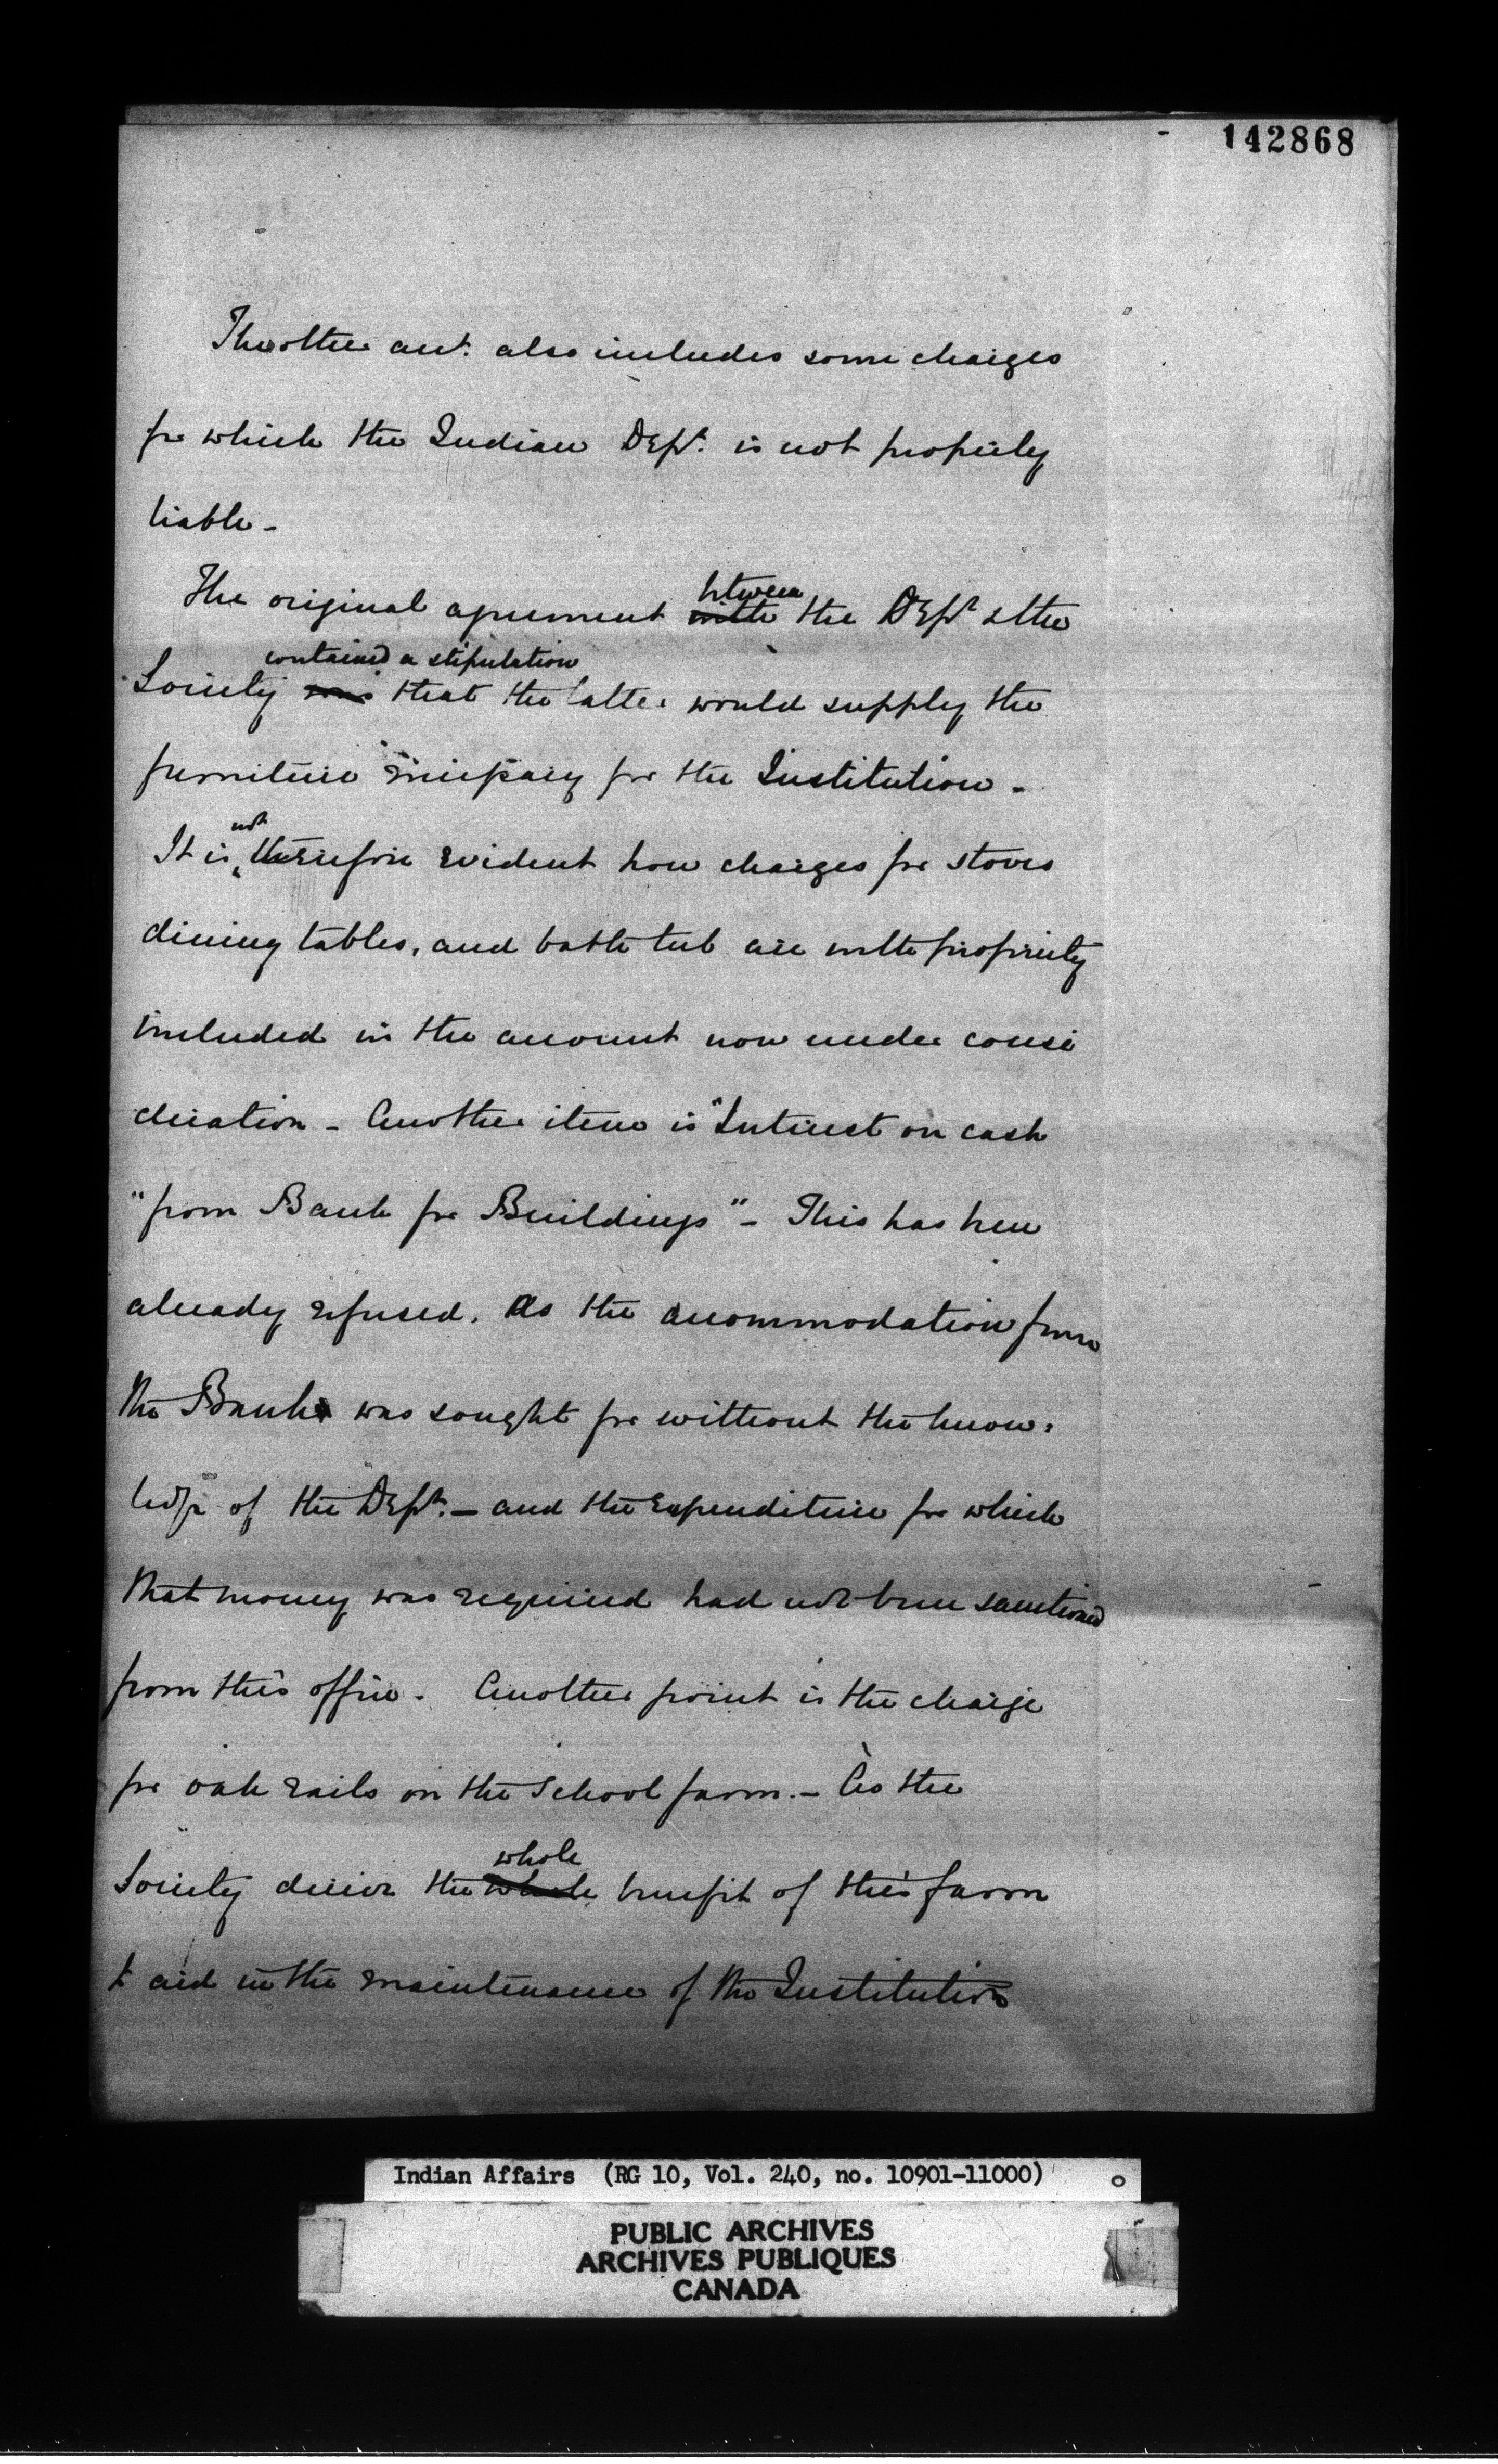 142868
The other acct. also includes some charges
for which the Indian Dept. is not properly
liable -
between
The original agreement with the Dept & the
contained a stipulation
Society was that the latter would supply the
furniture necessary for the Institution -
not
It is therefore evident how charges for stoves
dining tables, and bath tub are with propriety
included in the account now under consi
deration - Another item is "Interest on cash
"from Bank for Buildings" - This has been
already refused. As the accommodation from
the Bank was sought for without the know=
ledge of the Dept. - and the expenditure for which
that money was required had not been sanctioned
from this office. Another point is the charge
for oak rails on the School farm. - As the
whole
Society derive the whole benefit of this farm
to aid in the maintenance of the Institution
Indian Affairs (RG 10, Vol. 240, no. 10901-11000)
PUBLIC ARCHIVES
ARCHIVES PUBLIQUES
CANADA